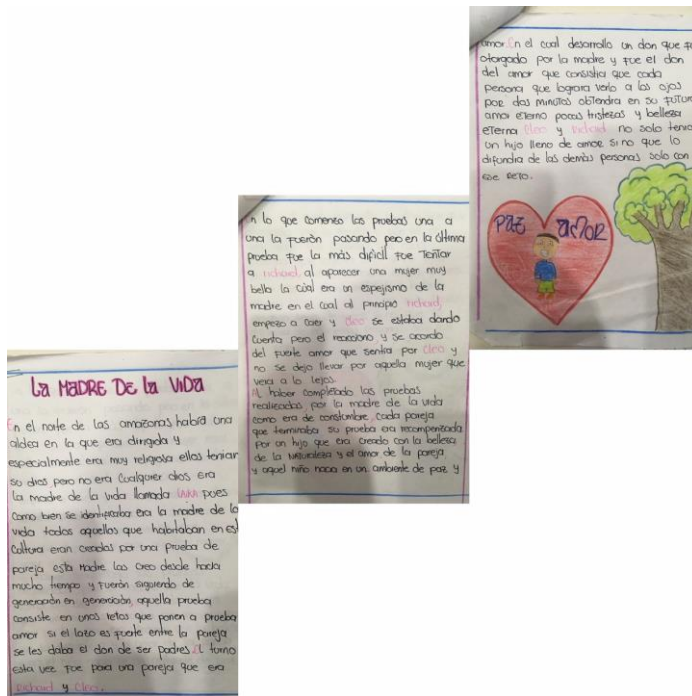 La MADRE DE La VIDA
En el norte de las amazonas había una
aldea en la que era dirigida y
especialmente era muy religiosa ellos tenian
su dios pero no era cualquier dios era
la madre de la vida llamada pues
como bien se identificaba era la madre de la
vida todos aquellos que habitaban en est
cultura eran creadas por una prueba de
pareja esta madre los creo desde hacia
mucho tiempo y fuerón siguiendo de
generación en generación, aquella prueba
consiste en unos retos que ponen a prueba
amor si el lazo es fuerte entre la pareja
se les daba el don de ser padres. El turno
esta vez fue para una pareja que era
Richard y Cleo.
n lo que comenzo las pruebas una a
una la fuerón pasando pero en la última
prueba fue la más dificil fue Tentar
a richard, al aparecer una mujer muy
bella la cúal era un espejismo de la
madre en el cual al principio richard,
empezo a caer y Cleo se estaba dando
cuenta pero el reacciono y se acordo
del fuerte amor que sentia por Cleo y
no se dejo llevar por aquella mujer que
veia a lo lejos.
Al haber completado las pruebas
realizadas por la madre de la vida
como era de constumbre, cada pareja
que terminaba su prueba era recompenzada
Por un hijo que era creado con la belleza
de la naturaleza y el amor de la pareja
y aquel niño nacia en un ambiente de paz y
amor. En el cual desarrollo un don que fu
otorgado por la madre y fue el don
del amor que consistia que cada
persona que lograra verlo a los ojos
por dos minutos obtendra en su futuro
amor eterno pocas tristezas y belleza
eterna Cleo y Richard no solo tenia
un hijo lleno de amor si no que lo
difundia de las demás personas solo con
ese reto.
PAZ AMOR